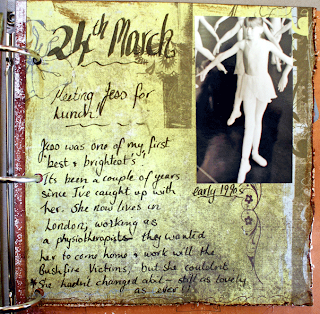 24th March
Meeting Jess for
Lunch!
Jess was one of my first
"best & brightest's".
Its been a couple of years
since I've caught up with
her. She now lives in
London, working as
a physiotherapist. they wanted
her to come home & work will the
Bushfire Victims, but she couldn't
She hadn't changed abit - still as lovely
as ever!
early 1990s